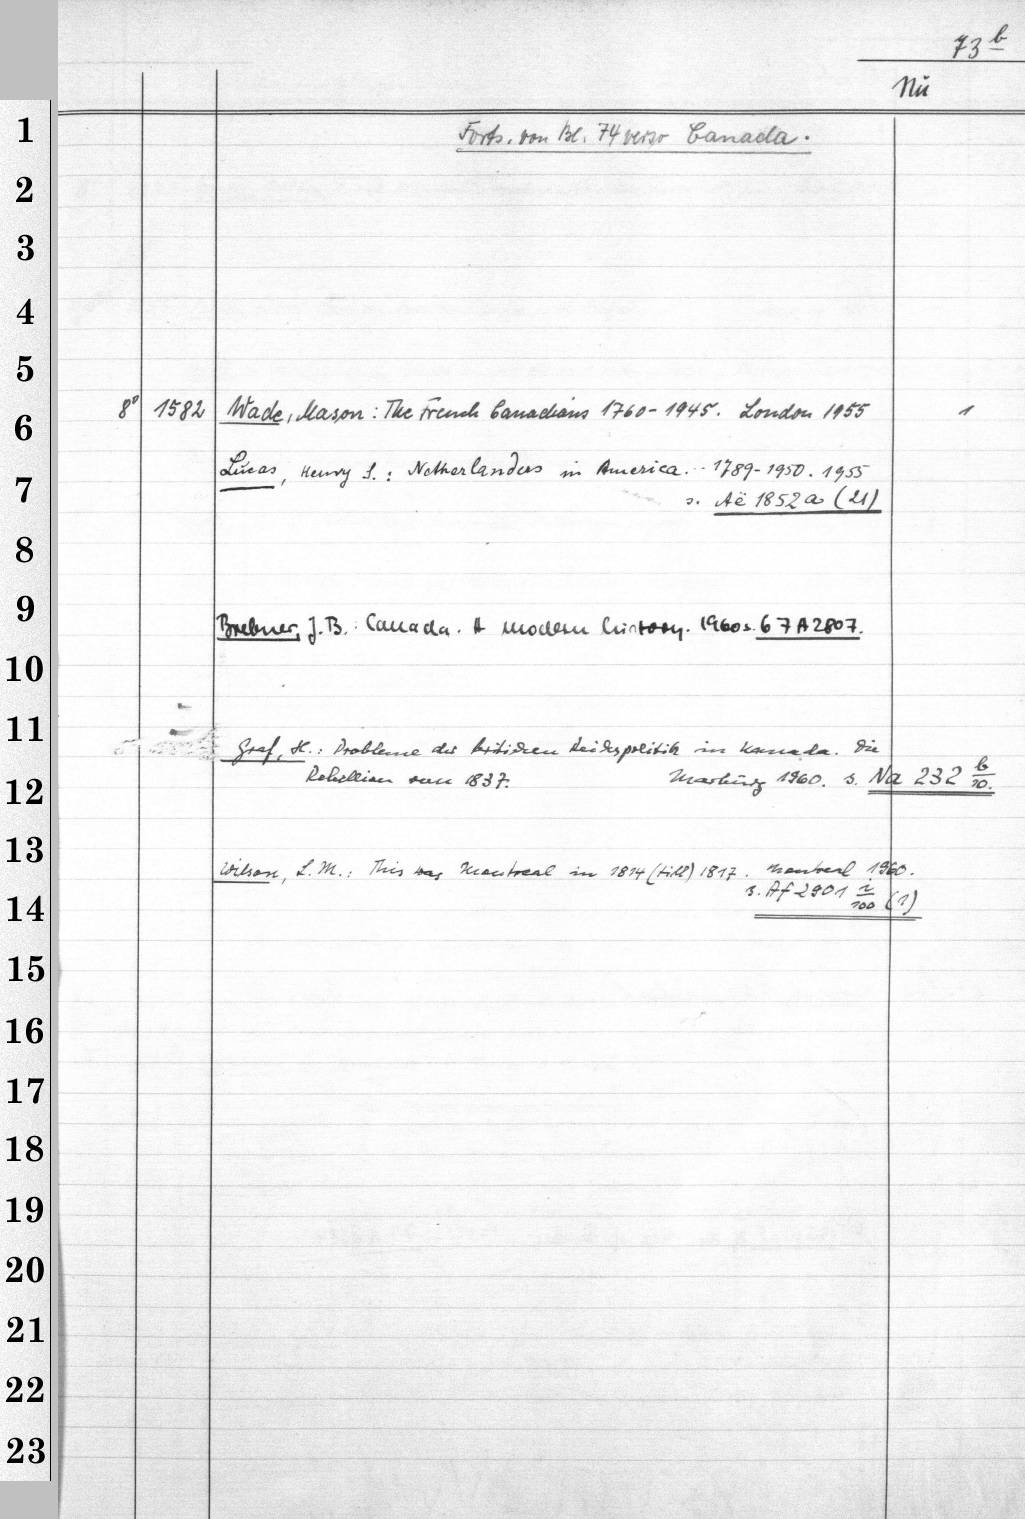 73 b
Nü
1
Forts. von Bl. 74 verso Canada.
2
3
4
5
6
8° 1582 Wade, Mason: The French Canadians 1760-1945. London 1955 1
Lucas, Henry S.: Netherlanders in America. 1789-1950. 1955
7
s. Aë 1852 a (21)
8
9
Brebner, J.B.: Canada. A modern history. 1960 s. 67 A 2807.
10
11
Graf, H.: Probleme der britischen Reichspolitik in Kanada. Die
Rebellion von 1837. Marburg 1960. s. Na 232 b/10.
12
13
Wilson, L.M.: This was Montreal in 1814 (till) 1817. Montreal 1960.
s. Af 2901 i/100 (1)
14
15
16
17
18
19
20
21
22
23